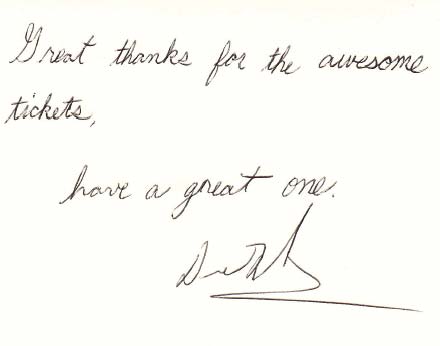 Great thanks for the awesome
tickets,
have a great one.